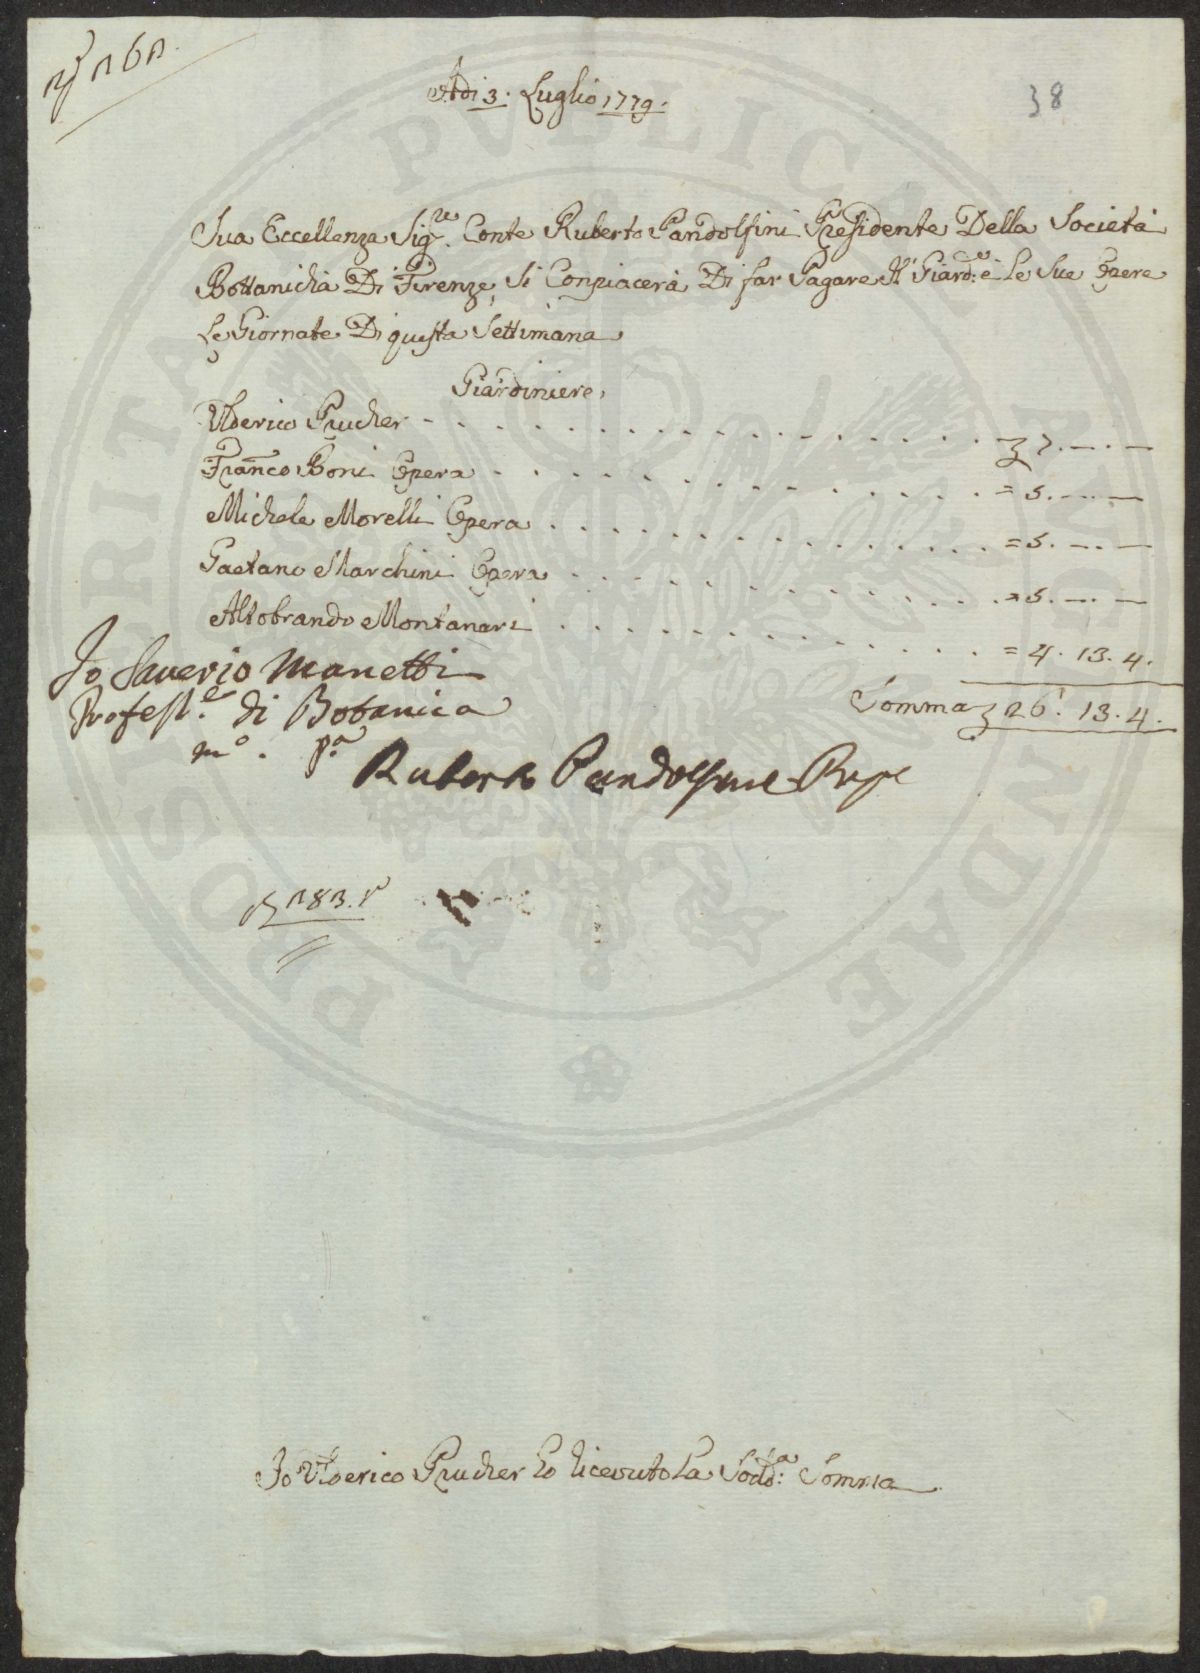 Adi 3. Luglio 1779.
38
Sua Eccellenza Sig.re Conte Ruberto Pandolfini Presidente Della Società
Bottanicha Di Firenze, Si Conpiacerà Di far Pagare Al Giard.e e Le Sue Opere
Le Giornate Di questa Settimana
Giardiniere,
Ulderico Prucher - 7.
Franco Boni Opera = 5.
Michele Morelli Opera = 5.
Gaetano Marchini Opera = 5.
Altobrando Montanari = 4. 13. 4.
Somma 26. 13. 4.
Io Saverio Manetti
Profess.e di Botanica
m.o p.a
Ruberto Pandolfini Presie
Io Ulderico Prucher ho ricevuto La Sodd.a Somma
PROSPERITATI PVBLICAE AVGENDAE